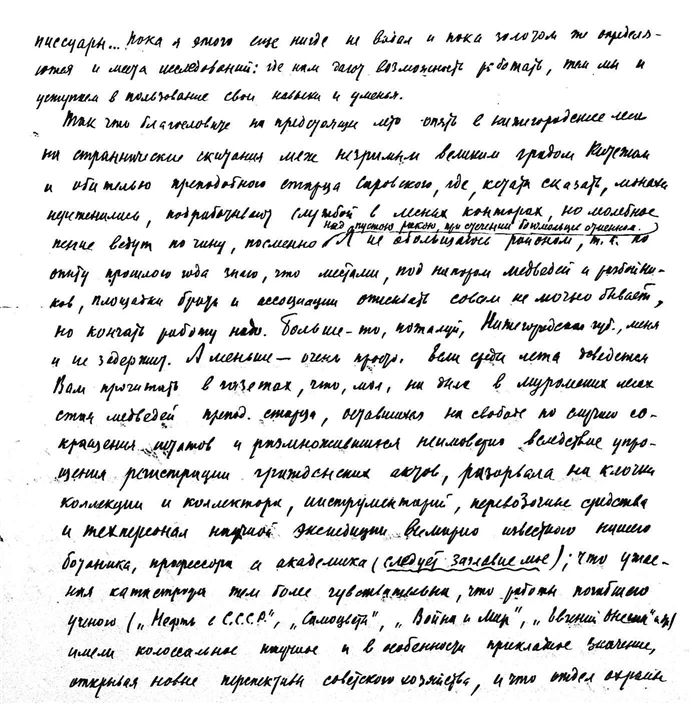 писсуары... Пока я этого еще нигде не видал и пока золотом же определя-
ются и места исследований: где нам дают возможность работать, там мы и
уступаем в пользование свои навыки и уменья.
Так что благословите на предстоящее лето опять в нижегородские леса
на страннические скитания меж незримым великим градом Китежем
и обителью преподобного старца Саровского, где, кстати сказать, монахи
подрабатывают службой в лесных конторах, но молебное
над пустою ракою, при стечении богомольцев отменном.
пение ведут по чину, посменно. Я не обольщаюсь районом, т. к. по
опыту прошлого года знаю, что местами, под напором медведей и разбойни-
ков, площадки брать и ассоциации описывать совсем не мочно бывает,
но кончать работу надо. Больше-то, пожалуй, Нижегородская губ., меня
и не задержит. А меньше — очень просто. Если среди лета доведется
Вам прочитать в газетах, что, мол, на днях в муромских лесах
стая медведей препод. старца, оставшихся на свободе по случаю со-
кращения штатов и размножившихся неимоверно вследствие упро-
щения регистрации гражданских актов, разорвала на клочки
коллекции и коллектора, инструментарий, перевозочные средства
и техперсонал научной экспедиции всемирно известного нашего
ботаника, профессора и академика (следует заглавие мое); что ужас-
ная катастрофа тем более чувствительна, что работы погибшего
ученого („Нефть с С.С.С.Р.", „Самоцветы", „Война и Мир", „Евгений Онегин" и др)
имели колоссальное научное и в особенности прикладное значение,
открывая новые перспективы советского хозяйства, и что отдел охраны